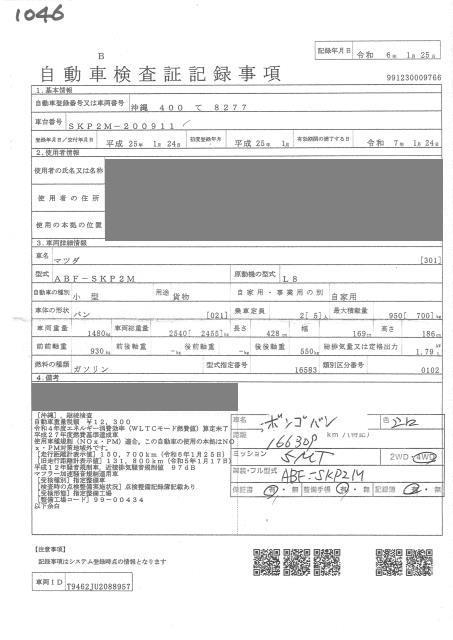 1046
記録年月日 令和 6年 1月 25日
B
自動車検査証記録事項 991230009766
1.基本情報
自動車登録番号又は車両番号 沖縄 400 て 8277
車台番号 SKP2M-200911
登録年月日/交付年月日 平成 25年 1月 24日 初度登録年月 平成 25年 1月 有効期間の満了する日 令和 7年 1月 24日
2.使用者情報
使用者の氏名又は名称
使用者の住所
使用の本拠の位置
3.車両詳細情報
車名 マツダ [301]
型式 ABF-SKP2M 原動機の型式 L8
自動車の種別 小型 用途 貨物 自家用・事業用の別 自家用
車体の形状 バン [021] 乗車定員 2[5]人 最大積載量 950[700]kg
車両重量 1480kg 車両総重量 2540[2455]kg 長さ 428cm 幅 169cm 高さ 186cm
前前軸重 930kg 前後軸重 -kg 後前軸重 -kg 後後軸重 550kg 総排気量又は定格出力 1.79L
燃料の種類 ガソリン 型式指定番号 16583 類別区分番号 0102
4.備考
[沖縄],継続検査
自動車重量税額 ¥12,300
令和4年度エネルギー消費効率(WLTCモード燃費値)算定未了
平成27年度燃費基準達成車
使用車種規制(NOx・PM)適合,この自動車の使用の本拠はNO
x・PM対策地域外です。
[走行距離計表示値]150,700km(令和6年1月25日)
[旧走行距離計表示値]131,800km(令和5年1月17日)
平成12年騒音規制車,近接排気騒音規制値 97dB
マフラー加速騒音規制適用車
[受検種別]指定整備車
[検査時の点検整備実施状況]点検整備記録簿記載あり
[受検形態]指定整備工場
[整備工場コード]99-00434
以下余白
車名 ボンゴバン 色
166309 km
ミッション 5MT 2WD・4WD
・フル型式 ABF-SKP2M
保証書 有・無 整備手帳 有・無 記録簿 有・無
【注意事項】
記録事項はシステム登録時点の情報となります
車両ID T9462JU2088957